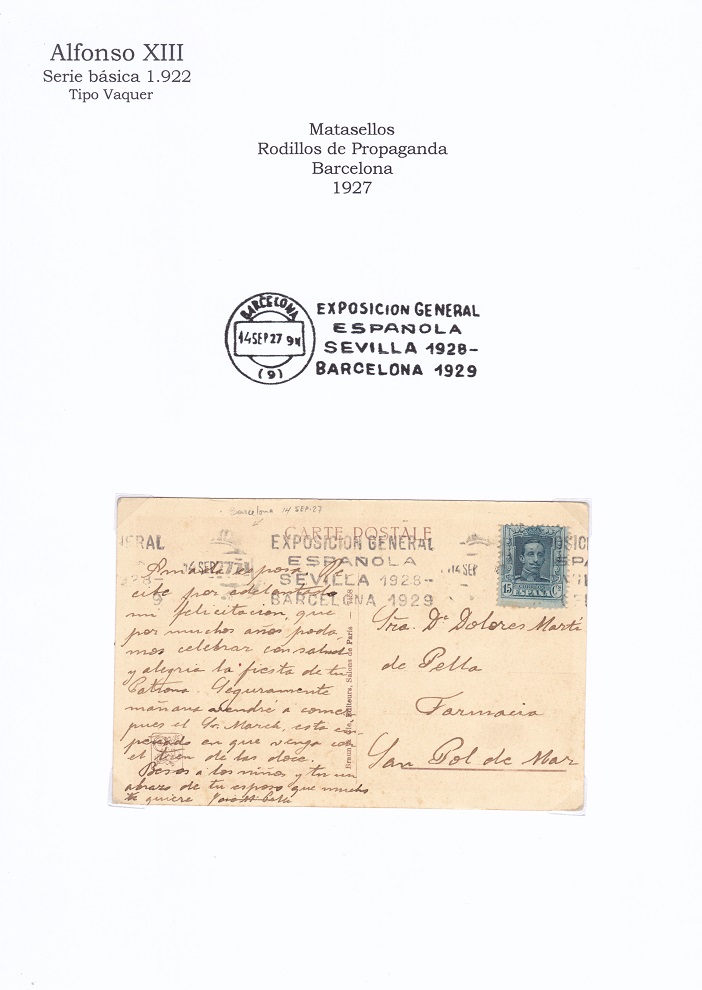 Alfonso XIII
Serie básica 1.922
Tipo Vaquer
Matasellos
Rodillos de Propaganda
Barcelona
1927
BARCELONA
14 SEP 27 9M
(9)
EXPOSICION GENERAL
ESPAÑOLA
SEVILLA 1928-
BARCELONA 1929
Barcelona 14 SEP-27
CARTE POSTALE
ERAL
EXPOSICION GENERAL
ESPAÑOLA
SEVILLA 1928-
BARCELONA 1929
14 SEP 27
14 SEP
15 Cs
ESPAÑA
Amada esposa: Re
cibe por adelantado
mi felicitacion, que
por muchos años poda
mos celebrar con salud
y alegria la fiesta de tu
Patrona. Seguramente
mañana vendré á comer
pues el Sr. March, esta em
peñado en que venga con
el tren de las doce.
Besos á los niños y tu un
abrazo de tu esposo que mucho
te quiere
Braun & Cie, Editeurs, Salons de Paris
Sra. Dª Dolores Marti
de Pella
Farmacia
San Pol de Mar